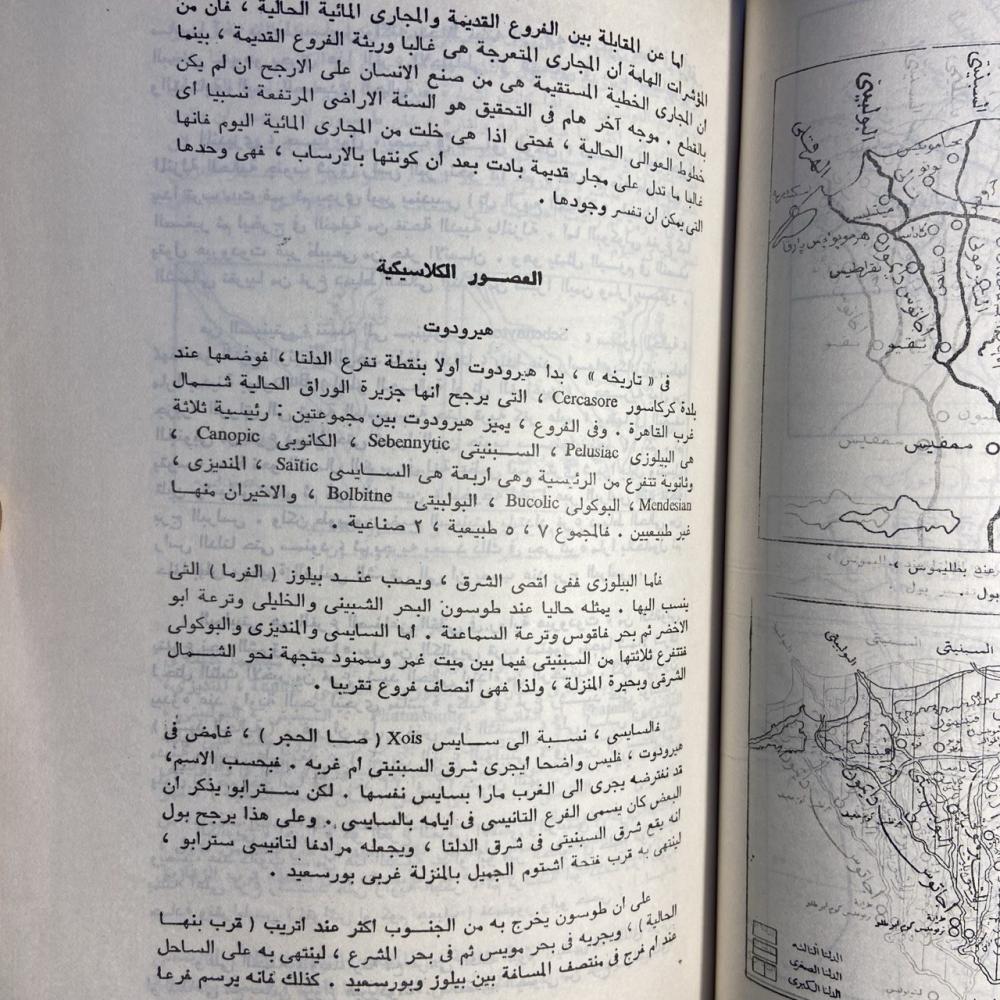 اما عن المقابلة بين الفروع القديمة والمجارى المائية الحالية ، فان من
المؤشرات الهامة ان المجارى المتعرجة هى غالبا وريثة الفروع القديمة ، بينما
ان المجارى الخطية المستقيمة هى من صنع الانسان على الارجح ان لم يكن
بالقطع . موجه آخر هام فى التحقيق هو السنة الاراضى المرتفعة نسبيا اى
خطوط العوالى الحالية ، فحتى اذا هى خلت من المجارى المائية اليوم فانها
غالبا ما تدل على مجار قديمة بادت بعد ان كونتها بالارساب ، فهى وحدها
التى يمكن ان تفسر وجودها .
العصـــور الكلاسيكية
هيرودوت
فى « تاريخه » ، بدا هيرودوت اولا بنقطة تفرع الدلتا ، فوضعها عند
بلدة كركاسور Cercasore ، التى يرجح انها جزيرة الوراق الحالية شــمال
غرب القاهرة . وفى الفروع ، يميز هيرودوت بين مجموعتين : رئيسية ثلاثة
هى البيلوزى Pelusiac ، السـبنيتى Sebennytic ، الكانوبى Canopic ،
وثانوية تتفرع من الرئيسية وهى اربعة هى السـايسى Saïtic ، المنديزى ،
Mendesian ، البوكولى Bucolic ، البولبيتى Bolbitne ، والاخيران منهــا
غير طبيعيين . فالمجموع ٧ ، ٥ طبيعية ، ٢ صناعية .
فأما البيلوزى ففى اقصى الشرق ، ويصب عنــد بيلوز ( الفرما ) التى
ينسب اليها . يمثله حاليا عند طوسون البحر الشبينى والخليلى وترعة ابو
الاخضر ثم بحر فاقوس وترعة السماعنة . أما السايسى والمنديزى والبوكولى
فتتفرع ثلاثتها من السبنيتى فيما بين ميت غمر وسمنود متجهة نحو الشــمال
الشرقى وبحيرة المنزلة ، ولذا فهى أنصاف فروع تقريبا .
فالسايسى ، نسبة الى ســايس Xois ( صــا الحجر ) ، غامض فى
هيرودوت ، فليس واضحا أيجرى شرق السبنيتى أم غربه . فبحسب الاسم،
قد نفترضه يجرى الى الغرب مارا بسايس نفسها . لكن ســترابو يذكر ان
البعض كان يسمى الفرع التانيسى فى ايامه بالسايسى . وعلى هذا يرجح بول
انه يقع شرق السبنيتى فى شرق الدلتا ، ويجعله مرادفا لتانيسى سترابو ،
لينتهى به قرب فتحة اشتوم الجميل بالمنزلة غربى بورسعيد .
على ان طوسون يخرج به من الجنــوب اكثر عند اتريب ( قرب بنهــا
الحالية ) ، ويجريه فى بحر مويس ثم فى بحر المشرع ، لينتهى به على الساحل
عند ام فرج فى منتصف المسافة بين بيلوز وبورسعيد . كذلك فانه يرسم فرعا
السبنيتى
البولبيتى
الهرقلى
نقراطيس
نيقيو
ممفيس
عند بطليموس
بول .
السبنيتى
البولبيتى
الدلتا الثالثة
الدلتا الصغرى
الدلتا الكبرى